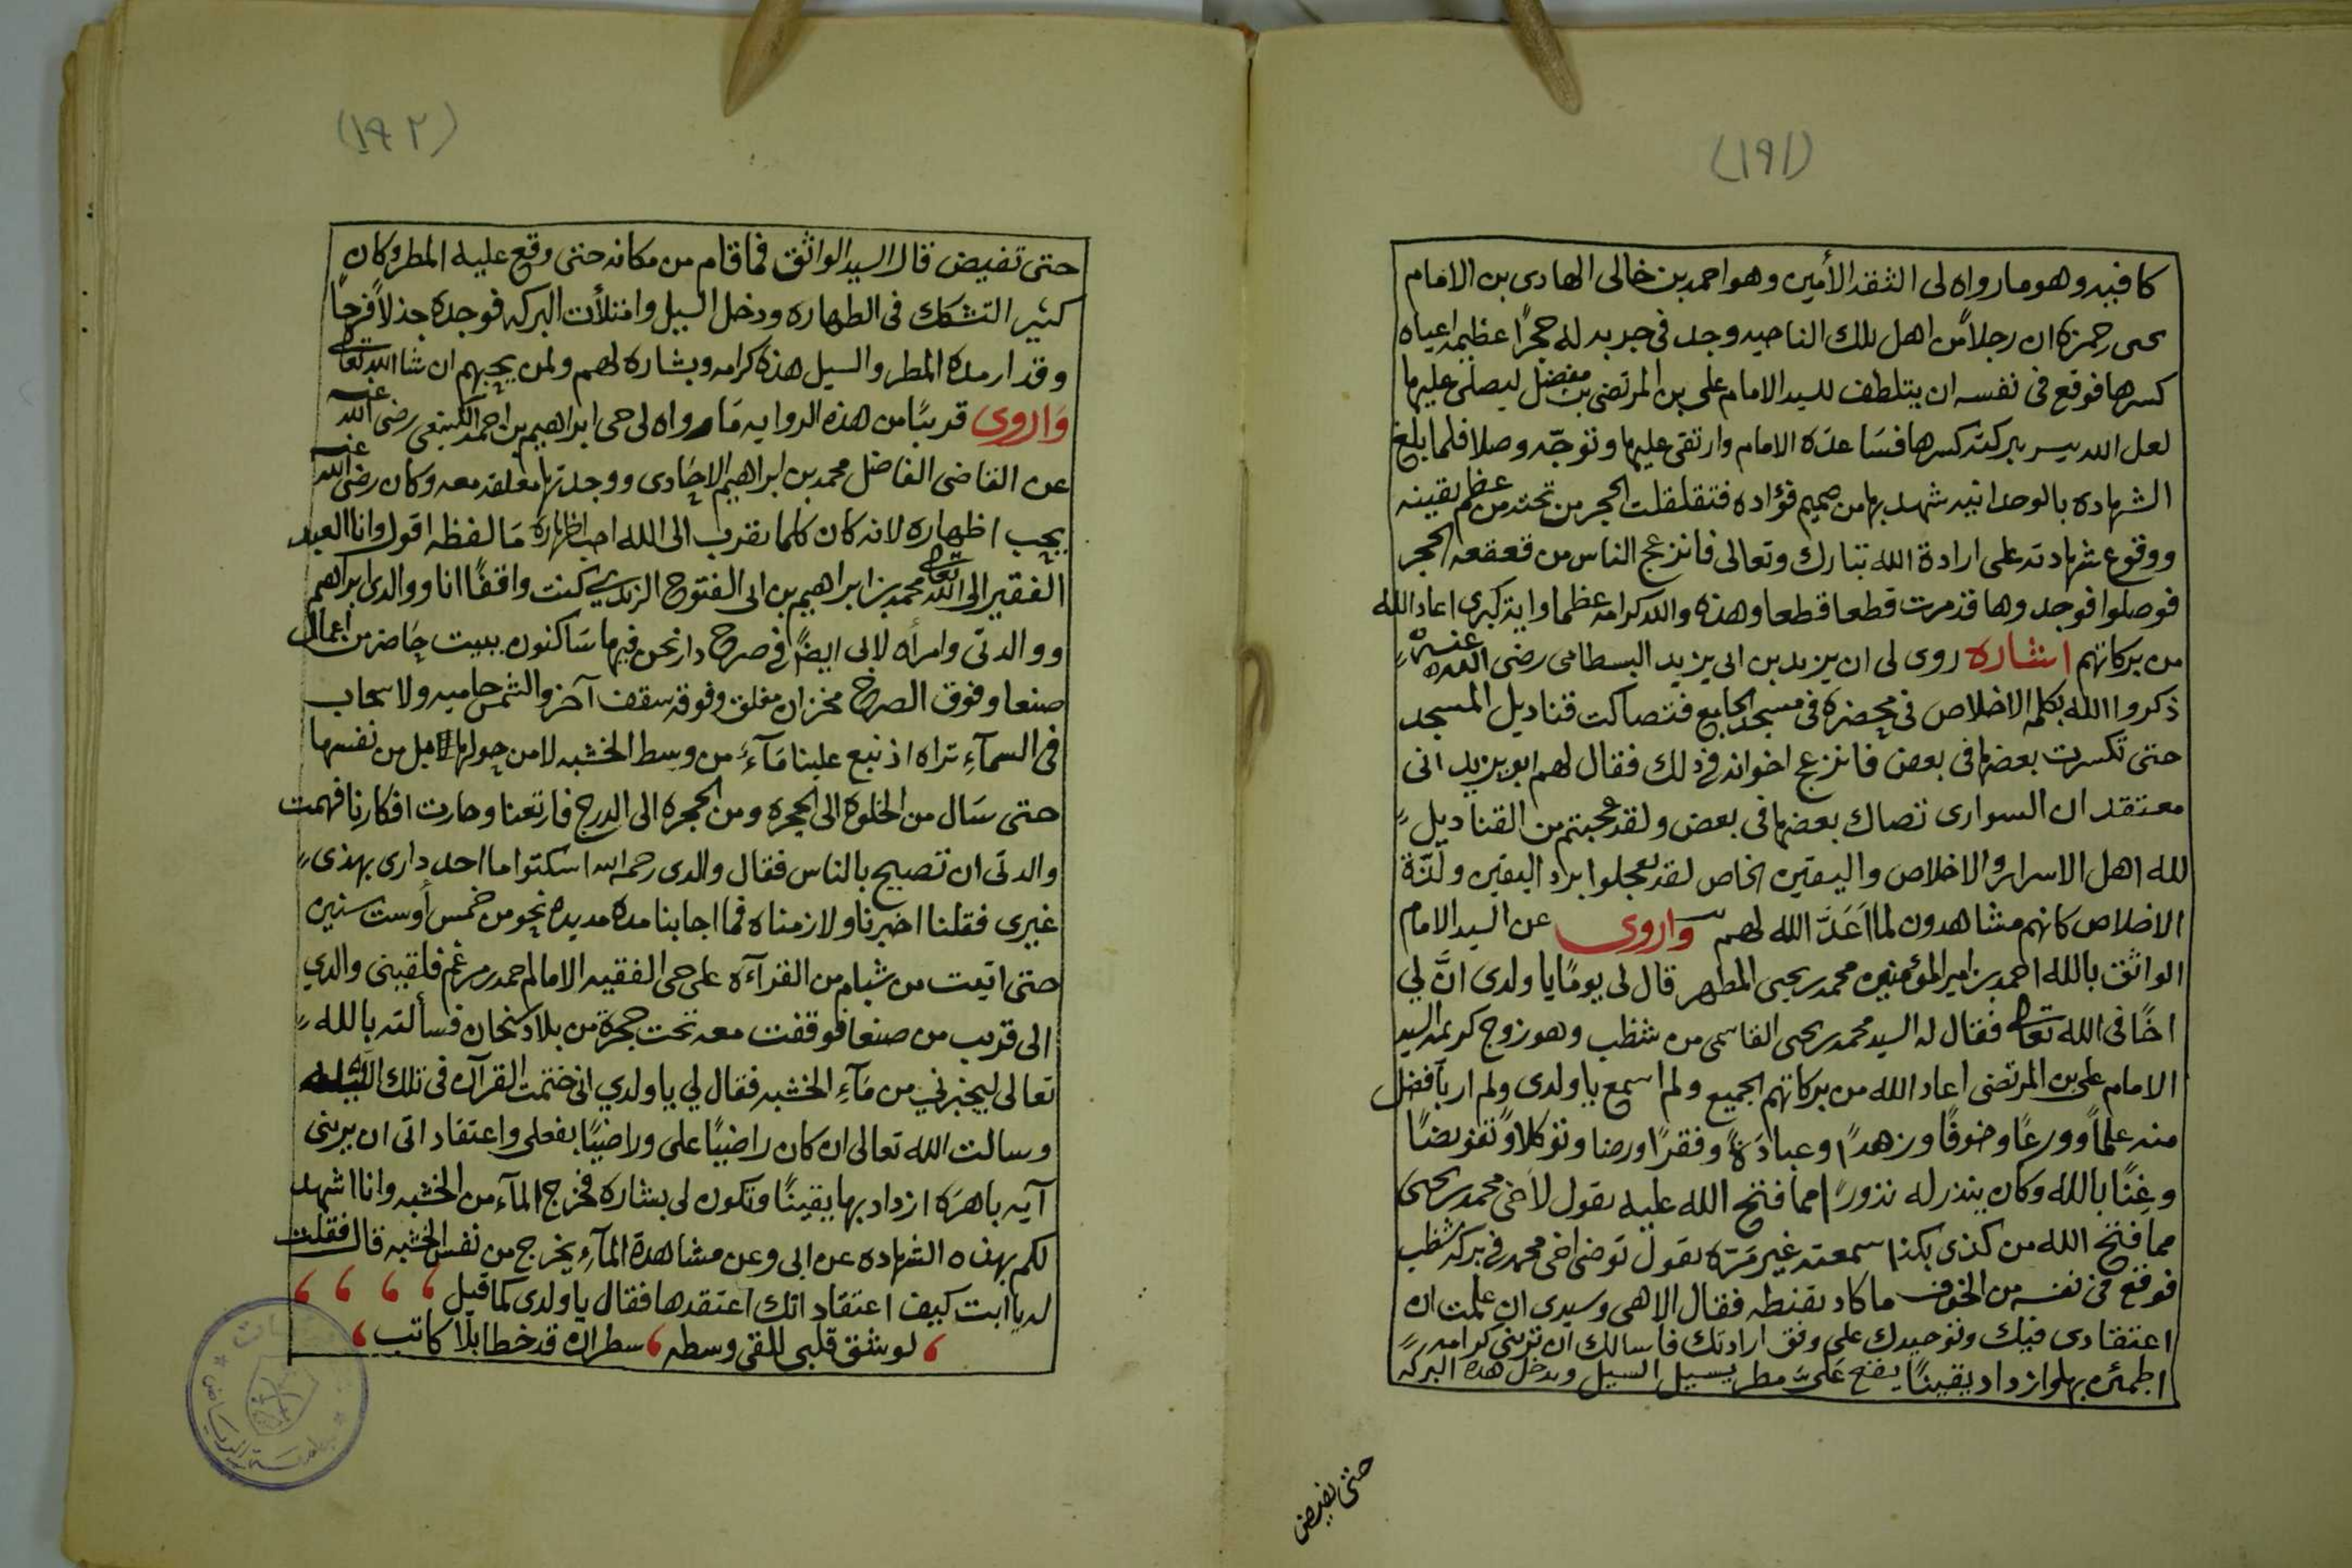 (١٩١)
كافيه وهو ما رواه لى الثقه الأمين وهو احمد بن خالى الهادى بن الامام
يحيى حمزه ان رجلاً من اهل تلك الناحيه وجد فى جربه له حجرًا عظيمه اعياه
كسرها فوقع فى نفسه ان يتلطف للسيد الامام على بن المرتضى بن مفضل ليصلى عليها
لعل الله ييسر ببركته كسرها فساعده الامام وارتقى عليها وتوجّه وصلا فلما بلغ
الشهاده بالوحدانيه شهد بها من صميم فؤاده فتقلقلت الحجر من تحته من عظم يقينه
ووقوع شهادته على ارادة الله تبارك وتعالى فانزعج الناس من قعقعه الحجر
فوصلوا فوجدوها قد مرت قطعا قطعا وهذه والله كرامه عظما واية كبرى اعاد الله
من بركاتهم اشاره روى لى ان يزيد بن ابى يزيد البسطامى رضى الله عنه
ذكروا الله بكلمة الاخلاص فى محضره فى مسجد الجامع فتصاكت قناديل المسجد
حتى تكسرت بعضها فى بعض فانزعج اخوانه فى ذلك فقال لهم ابو يزيد انى
معتقد ان السوارى تصاك بعضها فى بعض ولقد عجبتم من القناديل
لله اهل الاسرار والاخلاص واليقين الخاص لقد تعجلوا برد اليقين ولذّة
الاخلاص كانهم مشاهدون لما اَعَدَّ الله لهم واروى عن السيد الامام
الواثق بالله احمد بن امير المؤمنين محمد بن يحيى المطهر قال لى يومًا يا ولدى انَّ لي
اخًا فى الله تعالى فقال له السيد محمد بن يحيى القاسمى من شظب وهو زوج كريمه السيد
الامام على بن المرتضى اعاد الله من بركاتهم الجميع ولم اسمع يا ولدى ولم ار بأفضل
منه علماً وورعًا وخوفًا وزهدًا وعبادَةً وفقرًا ورضا وتوكلاً وتفويضًا
وغِنًا بالله وكان ينذر له نذورًا مما فتح الله عليه يقول لأخى محمد بن يحيى
مما فتح الله من كذى بكذا سمعته غير مَرّه يقول توضى اخى محمد فى بركه شظب
فوقع فى نفسه من الخوف ما كاد يقنطه فقال الاهى وسيدى ان علمت ان
اعتقادى فيك وتوحيدك على وفق ارادتك فاسالك ان ترينى كرامه
اطمئن بها وازداد يقينًا يقع عَلَىَّ مطر يسيل السيل وتدخل هذه البركه
حتى تفيض
(١٩٢)
حتى تفيض قال السيد الواثق فما قام من مكانه حتى وقع عليه المطر وكان
كثير التشكك فى الطهاره ودخل السيل وامتلأت البركه فوجده جذلاً فرحًا
وقد ار مده المطر والسيل هذه كرامه وبشاره لهم ولمن يحبهم ان شا الله تعالى
وَاروى قريبًا من هذه الروايه مَا رواه لى حى ابراهيم بن احمد الكينعى رضى الله عنه
عن القاضى الفاضل محمد بن ابراهيم الاحادى ووجدتها معلقه معه وكان رضى الله عنه
يحب اظهاره لانه كان كلما يقرب الى الله احب اظهاره مَا لفظه اقول وانا العبد
الفقير الى الله تعالى محمد بن ابراهيم بن ابى الفتوح الزيدي كنت واقفًا انا ووالدى ابراهيم
ووالدتى وامرأه لابى ايضًا فى صرح دار نحن فيها سَاكنون ببيت حَاضر من اعمال
صنعا وفوق الصرح مخزان مغلق وفوقه سقف آخر والشمس حاميه ولا سحاب
فى السمآءِ تراه اذ نبع علينا مَآءً من وسط الخشبه لا من حولها بل من نفسها
حتى سَال من الخلوه الى الحجره ومن الحجره الى الدرج فارتعنا وحارت افكارنا فهمت
والدتى ان تصيح بالناس فقال والدى رحمه الله اسكتوا ما احد دارى بهذى
غيرى فقلنا اخبرنا ولازمناه فما اجابنا مده مديده نحو من خمس أوست سنين
حتى اتيت من شبام من القرآءَه على حى الفقيه الامام احمد مرغم فلقينى والدي
الى قريب من صنعا فوقفت معه تحت حجرة من بلاد سنحان فسألته بالله
تعالى ليخبرني من مَآءِ الخشبه فقال لي يا ولدي انى ختمت القرآن فى تلك الليله
وسالت الله تعالى ان كان راضيًا على وراضيًا بفعلى واعتقاداتى ان يرينى
آيه باهرَه ازداد بها يقينًا وتكون لى بشاره فخرج المآء من الخشبه وانا اشهد
لكم بهذه الشهاده عن ابى وعن مشاهدة المآءِ يخرج من نفس الخشبه قال فقلت
له يا ابت كيف اعتقاداتك اعتقدها فقال يا ولدى كما قيل
لو شق قلبى للقى وسطه سطران قد خطا بلا كاتب